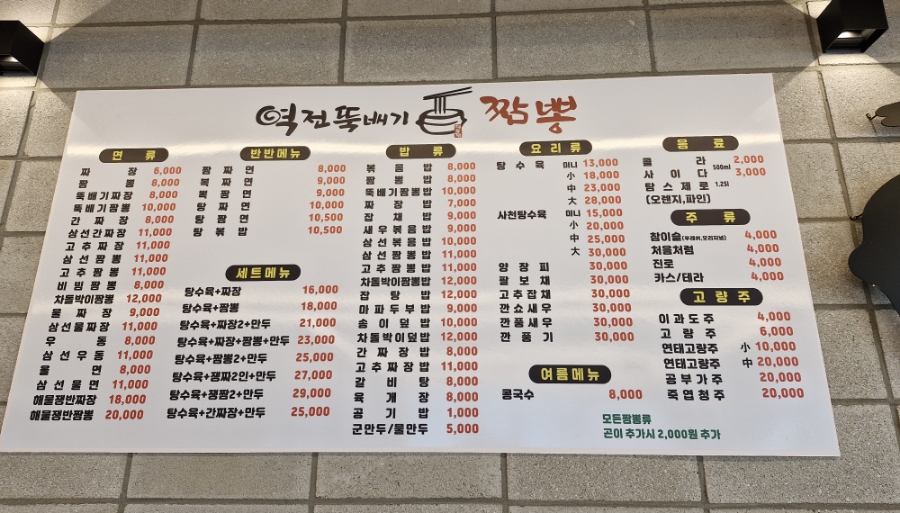 역전뚝배기 짬뽕
면 류
짜 장 6,000
짬 뽕 8,000
뚝배기짜장 8,000
뚝배기짬뽕 10,000
간 짜 장 8,000
삼선간짜장 11,000
고추짜장 11,000
삼선짬뽕 11,000
고추짬뽕 11,000
비빔짬뽕 8,000
차돌박이짬뽕 12,000
물 짜 장 9,000
삼선물짜장 11,000
우 동 8,000
삼선우동 11,000
울 면 8,000
삼선울면 11,000
해물쟁반짜장 18,000
해물쟁반짬뽕 20,000
반반메뉴
짬 짜 면 8,000
볶 짜 면 9,000
볶 짬 면 9,000
탕 짜 면 10,000
탕 짬 면 10,500
탕 볶 밥 10,500
세트메뉴
탕수육+짜장 16,000
탕수육+짬뽕 18,000
탕수육+짜장2+만두 21,000
탕수육+짜장+짬뽕+만두 23,000
탕수육+짬뽕2+만두 25,000
탕수육+쟁짜2인+만두 27,000
탕수육+쟁짬2+만두 29,000
탕수육+간짜장+만두 25,000
밥 류
볶 음 밥 8,000
짬 뽕 밥 8,000
뚝배기짬뽕밥 10,000
짜 장 밥 7,000
잡 채 밥 9,000
새우볶음밥 9,000
삼선볶음밥 10,000
삼선짬뽕밥 11,000
고추짬뽕밥 11,000
차돌박이짬뽕밥 12,000
잡 탕 밥 12,000
마파두부밥 9,000
송이덮밥 10,000
차돌박이덮밥 12,000
간 짜 장 밥 8,000
고추짜장밥 11,000
갈 비 탕 8,000
육 개 장 8,000
공 기 밥 1,000
군만두/물만두 5,000
요리류
탕 수 육 미니 13,000
小 18,000
中 23,000
大 28,000
사천탕수육 미니 15,000
小 20,000
中 25,000
大 30,000
양 장 피 30,000
팔 보 채 30,000
고추잡채 30,000
깐쇼새우 30,000
깐풍새우 30,000
깐 풍 기 30,000
여름메뉴
콩국수 8,000
음 료
콜 라 500ml 2,000
사 이 다 3,000
탐스제로 1.25l
(오렌지,파인)
주 류
참이슬(후레쉬,오리지날) 4,000
처음처럼 4,000
진로 4,000
카스/테라 4,000
고 량 주
이과도주 4,000
고 량 주 6,000
연태고량주 小 10,000
연태고량주 中 20,000
공부가주 20,000
죽엽청주 20,000
모든짬뽕류
곤이 추가시 2,000원 추가